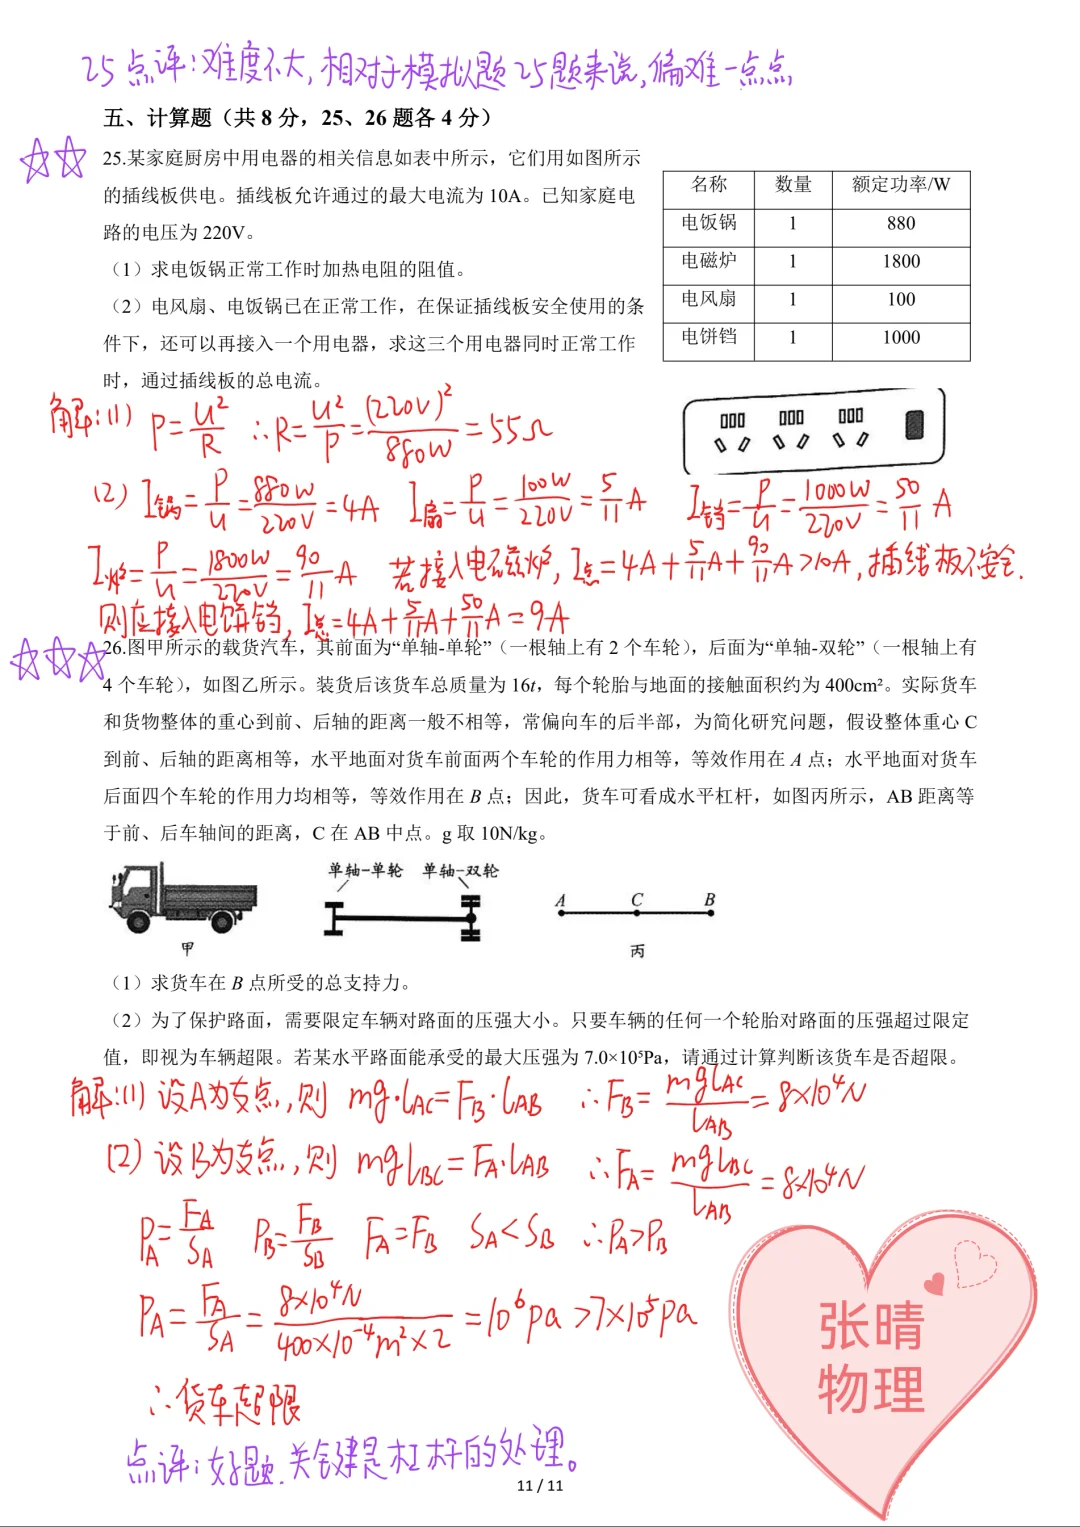 25点评:难度不大,相对于模拟题25题来说,偏难一点点
五、计算题（共8分，25、26题各4分）
25.某家庭厨房中用电器的相关信息如表中所示，它们用如图所示
的插线板供电。插线板允许通过的最大电流为10A。已知家庭电
路的电压为220V。
（1）求电饭锅正常工作时加热电阻的阻值。
（2）电风扇、电饭锅已在正常工作，在保证插线板安全使用的条
件下，还可以再接入一个用电器，求这三个用电器同时正常工作
时，通过插线板的总电流。
名称 数量 额定功率/W
电饭锅 1 880
电磁炉 1 1800
电风扇 1 100
电饼铛 1 1000
解:(1) P=U²/R ∴R=U²/P=(220V)²/880W=55Ω
(2) I锅=P/U=880W/220V=4A I扇=P/U=100W/220V=5/11A I铛=P/U=1000W/220V=50/11A
I炉=P/U=1800W/220V=90/11A 若接入电磁炉,I总=4A+5/11A+90/11A>10A,插线板不安全.
则应接入电饼铛,I总=4A+5/11A+50/11A=9A
26.图甲所示的载货汽车，其前面为“单轴-单轮”（一根轴上有2个车轮），后面为“单轴-双轮”（一根轴上有
4个车轮），如图乙所示。装货后该货车总质量为16t，每个轮胎与地面的接触面积约为400cm²。实际货车
和货物整体的重心到前、后轴的距离一般不相等，常偏向车的后半部，为简化研究问题，假设整体重心C
到前、后轴的距离相等，水平地面对货车前面两个车轮的作用力相等，等效作用在A点；水平地面对货车
后面四个车轮的作用力均相等，等效作用在B点；因此，货车可看成水平杠杆，如图丙所示，AB距离等
于前、后车轴间的距离，C在AB中点。g取10N/kg。
单轴-单轮 单轴-双轮
A C B
甲 丙
（1）求货车在B点所受的总支持力。
（2）为了保护路面，需要限定车辆对路面的压强大小。只要车辆的任何一个轮胎对路面的压强超过限定
值，即视为车辆超限。若某水平路面能承受的最大压强为7.0×10⁵Pa，请通过计算判断该货车是否超限。
解:(1)设A为支点,则 mg·LAC=FB·LAB ∴FB=mgLAC/LAB=8×10⁴N
(2)设B为支点,则 mgLBC=FA·LAB ∴FA=mgLBC/LAB=8×10⁴N
PA=FA/SA PB=FB/SB FA=FB SA<SB ∴PA>PB
PA=FA/SA=8×10⁴N/400×10⁻⁴m²×2=10⁶pa>7×10⁵pa
∴货车超限
点评:好题.关键是杠杆的处理。
张晴
物理
11 / 11